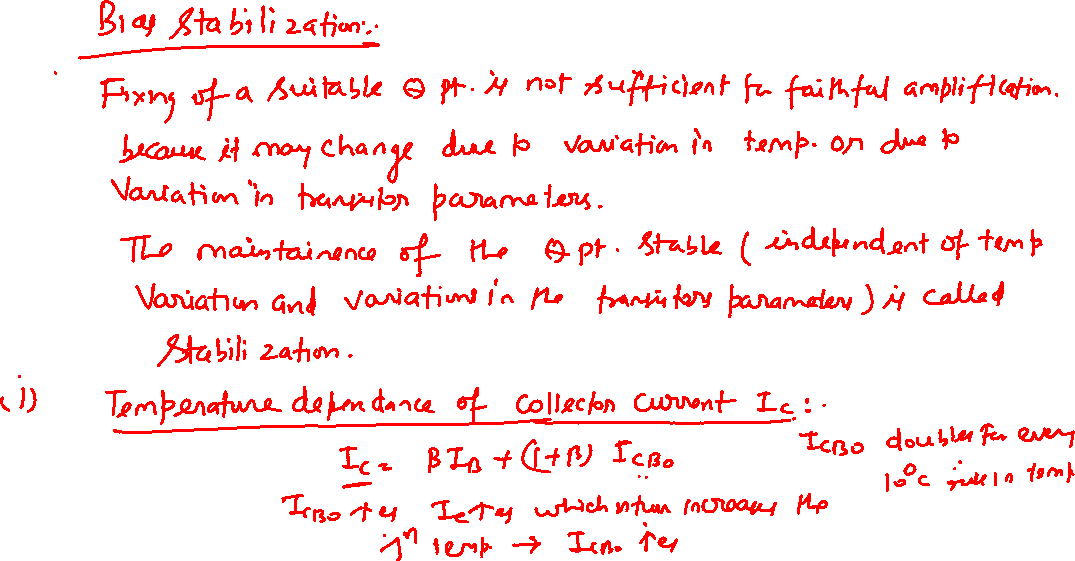 Bias Stabilization:.
Fixing of a suitable Q pt. is not sufficient for faithful amplification.
because it may change due to variation in temp. or due to
Variation in transistor parameters.
The maintainence of the Q pt. Stable ( independent of temp
Variation and variations in the transistors parameters ) is called
Stabilization.
(i) Temperature dependance of collector current Ic :.
Ic = βIB + (1+β) ICBO
ICBO doubles for every
10°C rise in temp
ICBO ↑es Ic ↑es which inturn increases the
jn temp → ICBO ↑es